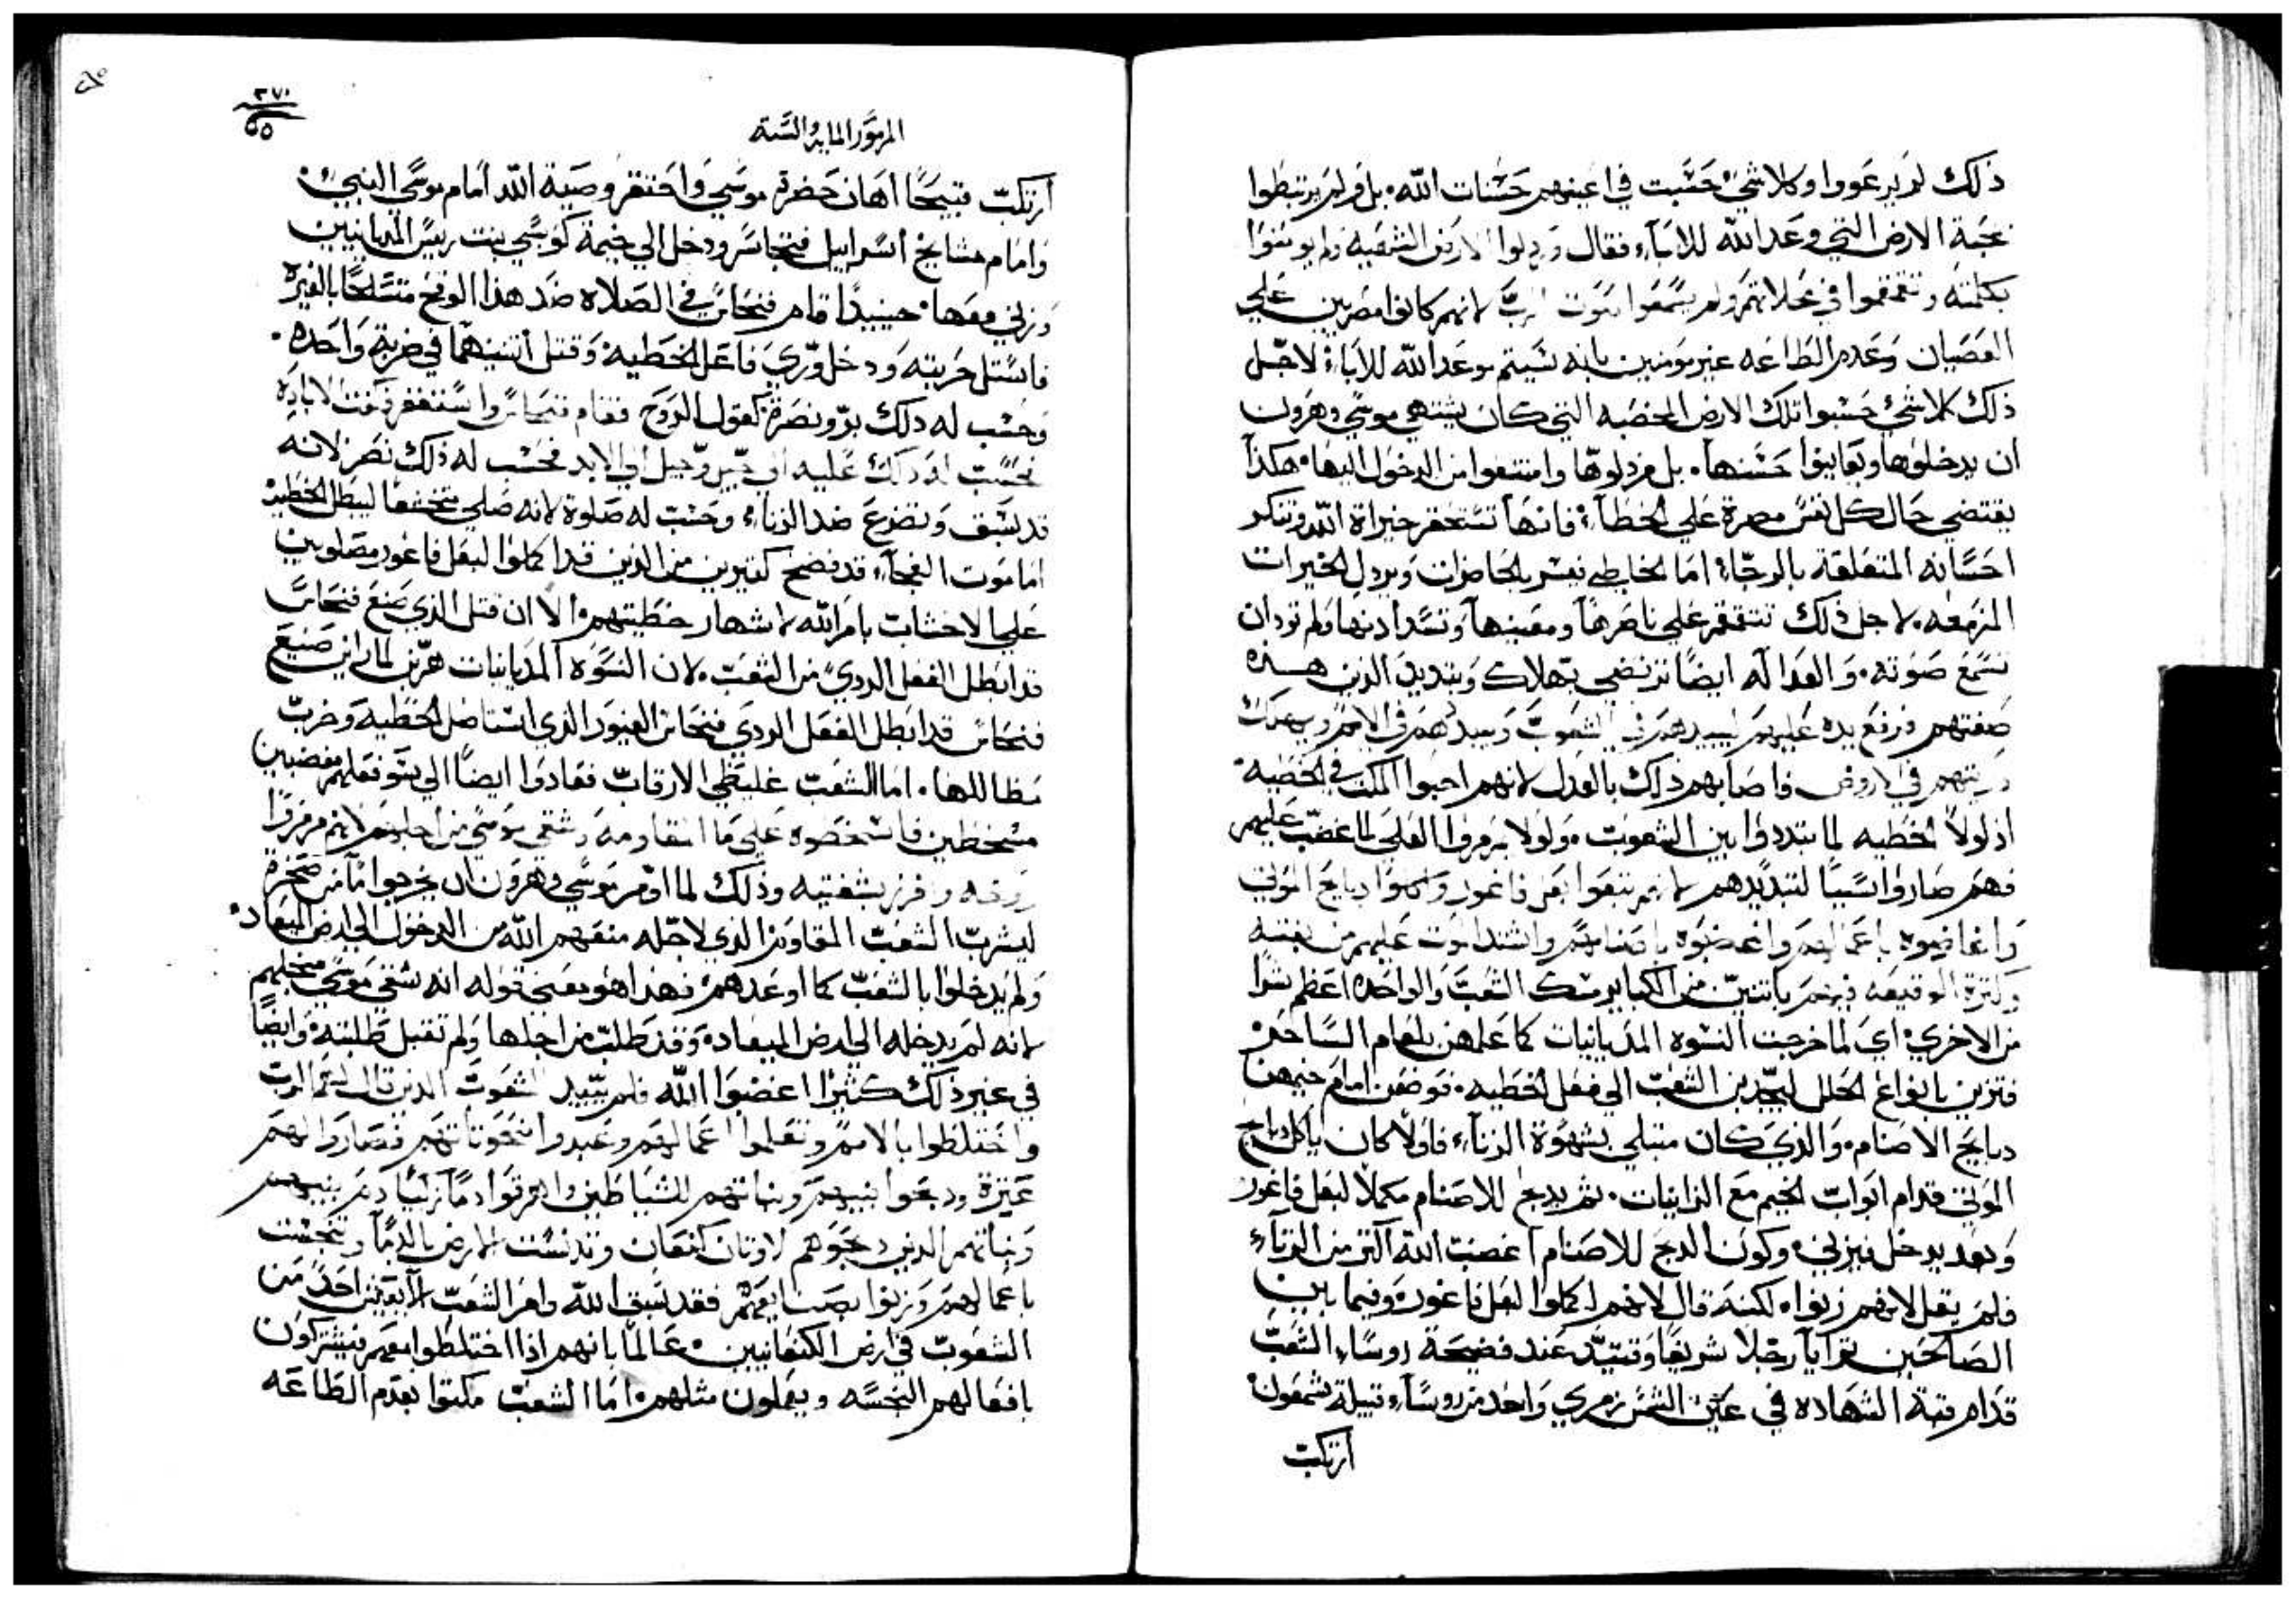 ذلك لم يرعووا وكلا شيء حسبت في اعينهم حسنات الله. بل ولم يرتبطوا
بمحبة الارض التي وعد الله للاباء فقال ورذلوا الارض الشهيه ولم يومنوا
بكلمته وتقمقموا في محلاتهم ولم يسمعوا صوت الرب لانهم كانوا مصرين علي
العصيان وعدم الطاعه غير مومنين بانه سيتم موعد الله للاباء لاجل
ذلك كلا شيء حسبوا تلك الارض الخصبه التي كان يشتهي موسي وهرون
ان يدخلوها ويعاينوا حسنها. بل مرذلوها وامتنعوا من الدخول اليها. هكذا
يقتضي حال كل نفس مصرة علي الخطاء فانها تستحقر خيراة الله وتنكر
احسانه المتعلقة بالرجاء اما الخاطي فيسر بالحاضرات ويرذل الخيرات
المزمعه. لاجل ذلك تتقمقم علي ناصرها ومعينها وتسد ادنها ولم تود ان
تسمع صوته. والعداله ايضا ترتضي بهلاك وتبديد الذين هذه
صفتهم فرفع يده عليهم ليبيدهم في الشعوب ويبددهم في الامم ويهلك
ذريتهم في الارض فاصابهم ذلك بالعدل لانهم احبوا المكث في الخطيه
اذ لولا الخطيه لما تبددوا بين الشعوب. ولولا مرمروا العلي لما غضب عليهم
فهم صاروا سببا لتبديدهم لانهم تبعوا بعل فاغور واكلوا دبايح الموتي
واغاضوه باعمالهم واغضبوه باصنامهم واشتد الموت عليهم من بغتنه
وكثرة الوقيعه فيهم باتنتين من الكباير مسك الشعب والواحده اعظم شرا
من الاخري اي لما خرجت النسوه المديانيات كما علمهن بلعام الساحر
فتزين بانواع الحلل ليجدبن الشعب الي فعل الخطيه. فوضعن امام خيمهن
دبايح الاصنام. والذي كان مبتلي بشهوة الزناء. فاولا كان ياكل دبايح
الموتي قدام ابواب الخيم مع الزانيات. ثم يدبح للاصنام مكملا لبعل فاغور
وبعد يدخل فيزني. وكون الدبح للاصنام اغضب الله اكتر من الزناء
فلم يقل لانهم زنوا. لكنه قال لانهم اكملوا لبعل فاغور. وفيما بين
الصالحين تراىا رجلا شريفا وقتيد عند فضيحة روساء الشعب
قدام قبة الشهاده في عين الشمس زمري واحد من روساء قبيلة شمعون
ارتكب
٣٧١
٥٥
المزمور المايه والسته
ارتكب قبيحا اهان حضرة موسي واحتقر وصية الله امام موسي النبي.
وامام مشايخ اسراييل فتجاسر ودخل الي خيمة كوسبي بنت ريس المديانيين
وزني معها. حينيدا قام فنحاس في الصلاه ضد هذا الوقح متسلحا بالغيره
فاستل حربته ودخل وري فاعل الخطيه وقتل اتنينهما في ضربة واحده.
وحسب له ذلك بر ونصرة كقول الروح فقام فنحاس واستغفر فكفت الاباده
فحسبت له ذلك عليه الي جيل وجيل الي الابد فحسب له ذلك نصر لانه
قد سبق وتضرع ضد الزناء. وحسبت له صلوة لانه صلي متخشعا ليبطل الخطيه
اما موت الفجاء. قد فضح كتيرين من الذين قد اكملوا لبعل فاغور مصلوبين
علي الاخشاب بامر الله لاشهار خطيتهم. الا ان قتل الذي صنع فنحاس
قد ابطل الفعل الردي من الشعب. لان النسوه المديانيات هربن لما راين صنيع
فنحاس قد ابطل الفعل الردي فنحاس الغيور الذي استاصل الخطيه وخرب
مظاللها. اما الشعب غليظي الارقاب فعادوا ايضا الي سو فعلهم مغضبين
مسخطين فاسخطوه علي ما المقاومه وشقي موسي من اجلهم لانهم مرمروا
روحه وافرز بشفتيه وذلك لما اومر موسي وهرون ان يخرجوا ما من صخرة
ليشرب الشعب المقاومين الذي لاجله منعهم الله من الدخول الي ارض الميعاد.
ولم يدخلوا بالشعب كما اوعدهم. فهذا هو معني قوله انه شقي موسي من اجلهم
لانه لم يدخله الي ارض الميعاد. وقد طلب من اجلها ولم تقبل طلبته. وايضا
في غير ذلك كثيرا اغضبوا الله فلم تبيد الشعوب الذين قال لهم الرب
واختلطوا بالامم وتعلموا اعمالهم وعبدوا منحوتاتهم فصاروا لهم
عترة ودبحوا بنيهم وبناتهم للشياطين واهرقوا دما زكيا دم بنيهم
وبناتهم الذين دبحوهم لاوتان كنعان وتدنست الارض بالدماء وتنجست
باعمالهم وزنوا بصنايعهم فقد سبق الله وامر الشعب لا يبقين احد من
الشعوب في ارض الكنعانيين. عالما بانهم اذا اختلطوا معهم فيشتركون
بافعالهم النجسه ويعملون مثلهم. اما الشعب مكتوا بعدم الطاعه